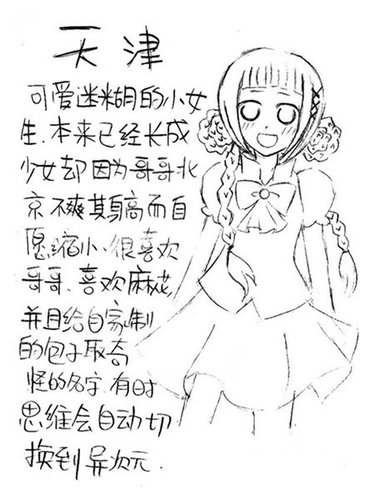 天津
可爱迷糊的小女
生.本来已经长成
少女却因为哥哥北
京不爽其身高而自
愿缩小.很喜欢
哥哥.喜欢麻花.
并且给自家制
的包子取奇
怪的名字.有时
思维会自动切
换到异次元.